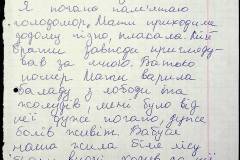 Я погано памятаю
голодомор, Мати приходила
додому пізно, плакала
братик завжди
вав за мною. Батько
помер Мати варила
баланду з лободи та
жолудів, мені було від
неї дуже погано, дуже
болів живіт. Бабуся
наша жила біля лісу